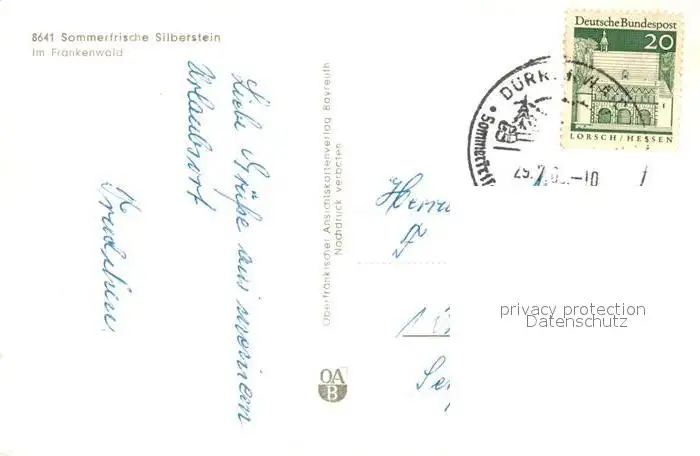 8641 Sommerfrische Silberstein
Im Frankenwald
Liebe Grüße aus meinem
Urlaubsort
Trudchen
Oberfränkischer Ansichtskartenverlag Bayreuth
Nachdruck verboten
OA
B
Deutsche Bundespost
20
LORSCH/HESSEN
DÜRR
Sommerfris
Herrn
privacy protection
Datenschutz